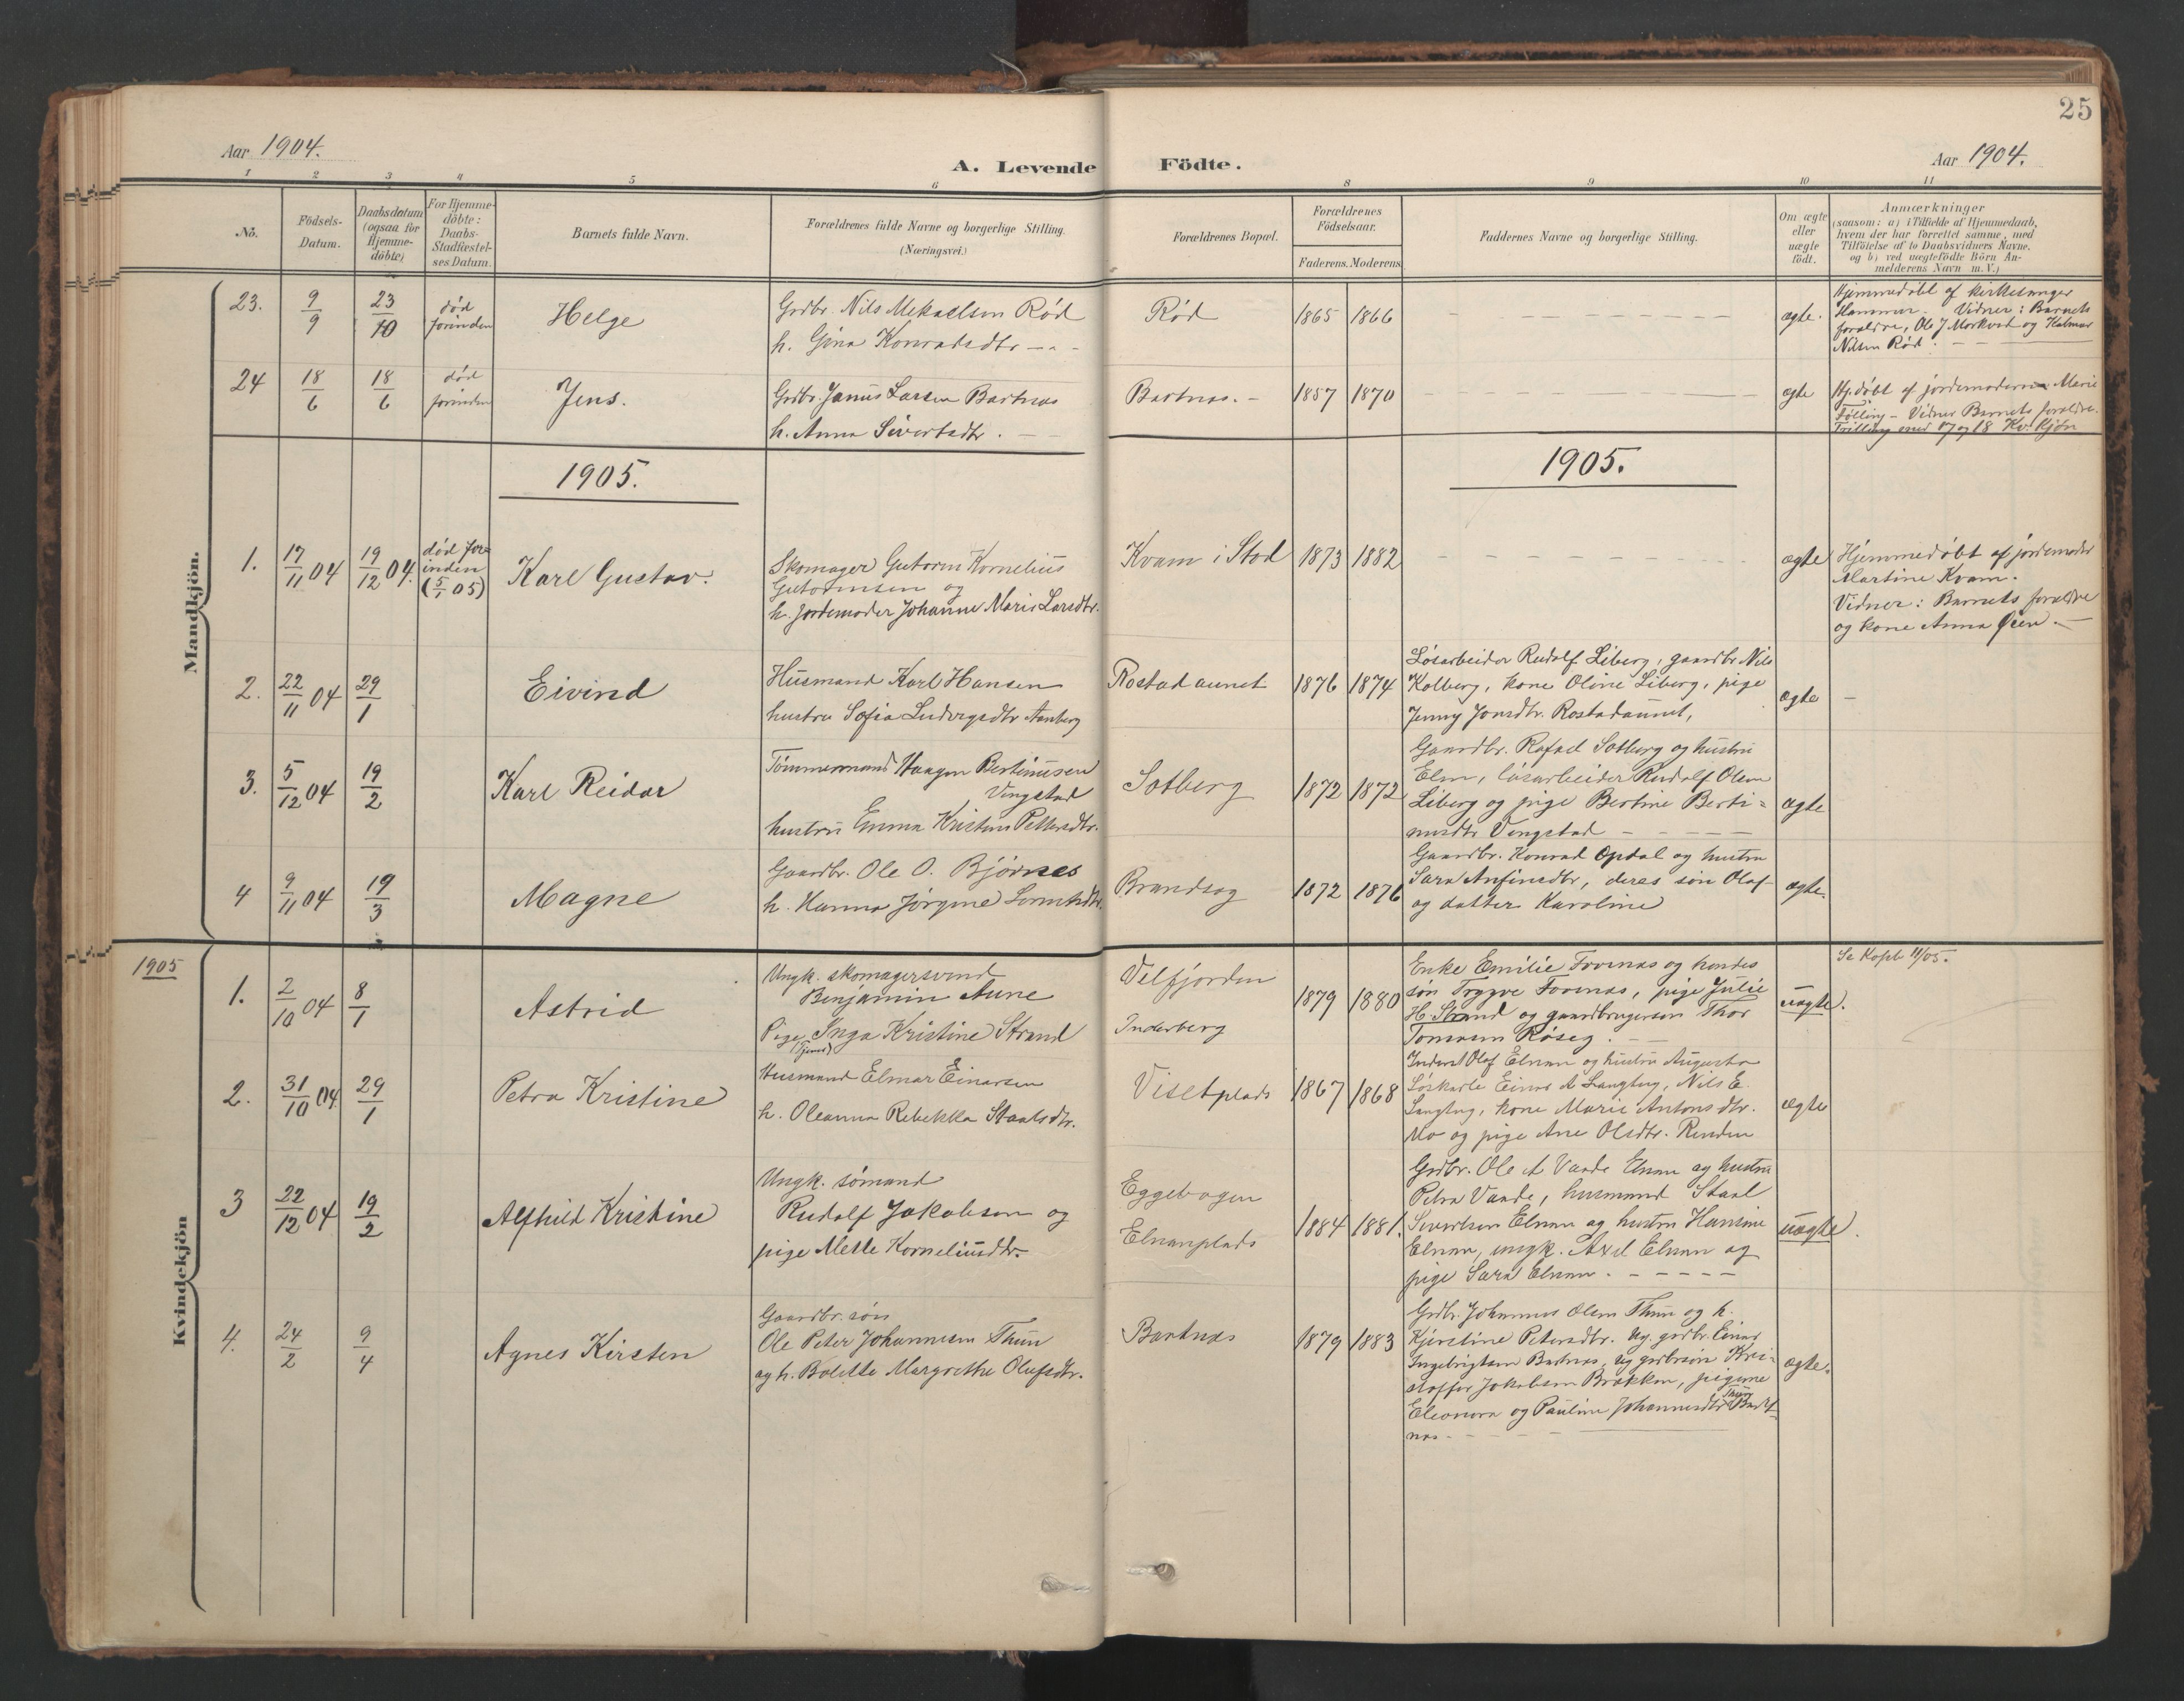 25
Aar 1904.
A. Levende Födte.
Aar 1904.
1 2 3 4 5 6 8 9 10 11
No.
Födsels-Datum.
Daabsdatum (ogsaa for Hjemme-döbte)
For Hjemme-döbte: Daabs-Stadfæstel-ses Datum.
Barnets fulde Navn.
Forældrenes fulde Navne og borgerlige Stilling.
(Næringsvei.)
Forældrenes Bopæl.
Forældrenes Födselsaar.
Faderens. Moderens
Faddernes Navne og borgerlige Stilling.
Om ægte eller uægte födt.
Anmærkninger
(saasom: a) i Tilfælde af Hjemmedaab,
hvem der har forrettet samme, med
Tilföielse af to Daabsvidners Navne.
og b) ved uægtefödte Börn An-
melderens Navn m. V.)
Mandkjön.
23. 9/9 23/10 død forinden Helge
Grdbr. Nils Mekaelsen Rød
h. Gina Konradsdtr - - -
Rød 1865 1866 ægte.
Hjemmedøbt af kirkesanger
Hammer. Vidner: Barnets
forældre, Ole J Morkved og Halmar
Nilsen Rød.
24 18/6 18/6 død forinden Jens.
Grdbr. Janus Larsen Bartnæs
h. Anna Sivertsdtr. -
Bartnæs. - 1857 1870 ægte
Hj.døbt af jordemoderen Marie
Følling - Vidner Barnets forældre.
Trilling med 17 og 18 Kv. kjøn
1905. 1905.
1. 17/11 04 19/12 04. død for-inden (5/1 05) Karl Gustav.
Skomager Gutorm Kornelius
Gutormsen og
h. Jordemoder Johanne Marie Larsdtr.
Kvam i Stod 1873 1882 ægte
Hjemmedøbt af jordemoder
Martine Kvam.
Vidner: Barnets forældre
og kone Anna Øien. -
2. 22/11 04 29/1 Eivind
Husmand Karl Hansen
hustru Sofia Ludvigsdtr Aanberg
Rostadaunet 1876 1874
Løsarbeider Rudolf Liberg, gaardbr Nils
Kolberg, kone Oline Liberg, pige
Jenny Jonsdtr. Rostadaunet,
ægte -
3. 5/12 04 19/2 Karl Reidar
Tømmermand Haagen Bertinusen
Vengstad
hustru Emma Kristine Pettersdtr.
Solberg 1872 1872
Gaardbr. Rafael Solberg og hustru
Elen, løsarbeider Rudolf Olsen
Liberg og pige Bertine Berti-
nusdtr Vengstad - - - -
ægte
4 9/11 04 19/3 Magne
Gaardbr. Ole O. Bjørnes
h. Hanna Jørgine
Brandseg 1872 1876
Gaardbr. Konrad Opdal og hustru
Sara Anfinsdtr, deres søn Olaf
og datter Karoline
ægte.
1905
Kvindekjön
1. 2/10 04 8/1 Astrid
Ungk. skomagersvend
Benjamin Aune
Pige Inga Kristine Strand
(tjener)
Velfjorden
Inderberg
1879 1880
Enke Emilie Forenæs og hendes
søn Trygve Forenæs, pige Julie
H. Strand og gaardbrugersøn Thor
Tomasen Røseg. -
uægte.
Se Kopb 11/05.
2. 31/10 04. 29/1 Petra Kristine
Husmand Elmar Einarsen
h. Oleanna Rebekka Staalsdtr.
Visetplads 1867 1868
Inderst Olaf Elnan og hustru Augusta
Løskarle Einar A Langhug, Nils E.
Langhug, kone Marie Antonsdtr.
Mo og pige Ane Olsdtr. Renden
ægte
3 22/12 04 19/2 Alfhild Kristine
Ungk. sømand
Rudolf Jakobsen og
pige Mette Korneliusdtr.
Eggebogen
Elnanplads
1884 1881.
Grdbr. Ole A Vande Elnan og hustru
Petra Vande, husmand Staal
Sivertsen Elnan og hustru Hansine
Elnan, ungk. Axel Elnan og
pige Sara Elnan. - - - - -
uægte.
4. 24/2 9/4 Agnes Kirsten
Gaardbr. søn
Ole Peter Johannesen Thun
og h. Bolette Margrethe Olufsdtr.
Bartnæs 1879 1883
Grdbr. Johannes Olsen Thun og h.
Kjerstine Petersdtr. Ug. grdbr. Einar
Ingebrigtsen Bartnæs, ug grdbrsøn Kri-
stoffer Jakobsen Brækken, pigerne
Eleonora og Pauline Johannesdtr Thun Bart-
næs - - - -
ægte.